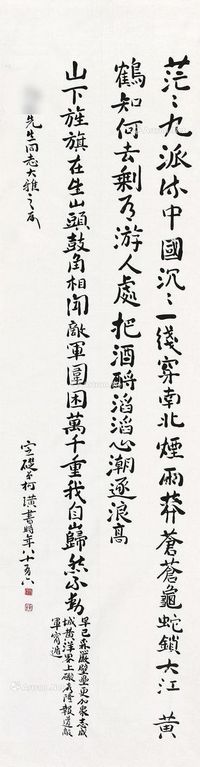 茫〻九派流中國沉〻一綫穿南北煙雨莽蒼蒼龜蛇鎖大江 黃
鶴知何去剩有游人處把酒酹滔滔心潮逐浪高
山下旌旗在望山頭鼓角相聞敵軍圍困萬千重我自巋然不動
早已森嚴壁壘更加衆志成
城黃洋界上礮聲隆報道敵
軍宵遁
先生同志大雅之屬
定礎弟柯璜書時年八十有六